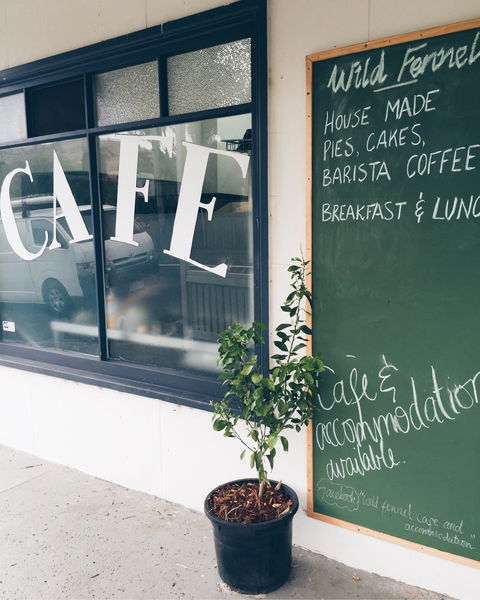 CAFE
Wild Fennel
HOUSE MADE
PIES, CAKES,
BARISTA COFFEE
BREAKFAST & LUNC
Café &
accommodation
available.
Facebook "wild fennel cafe and
accommodation"